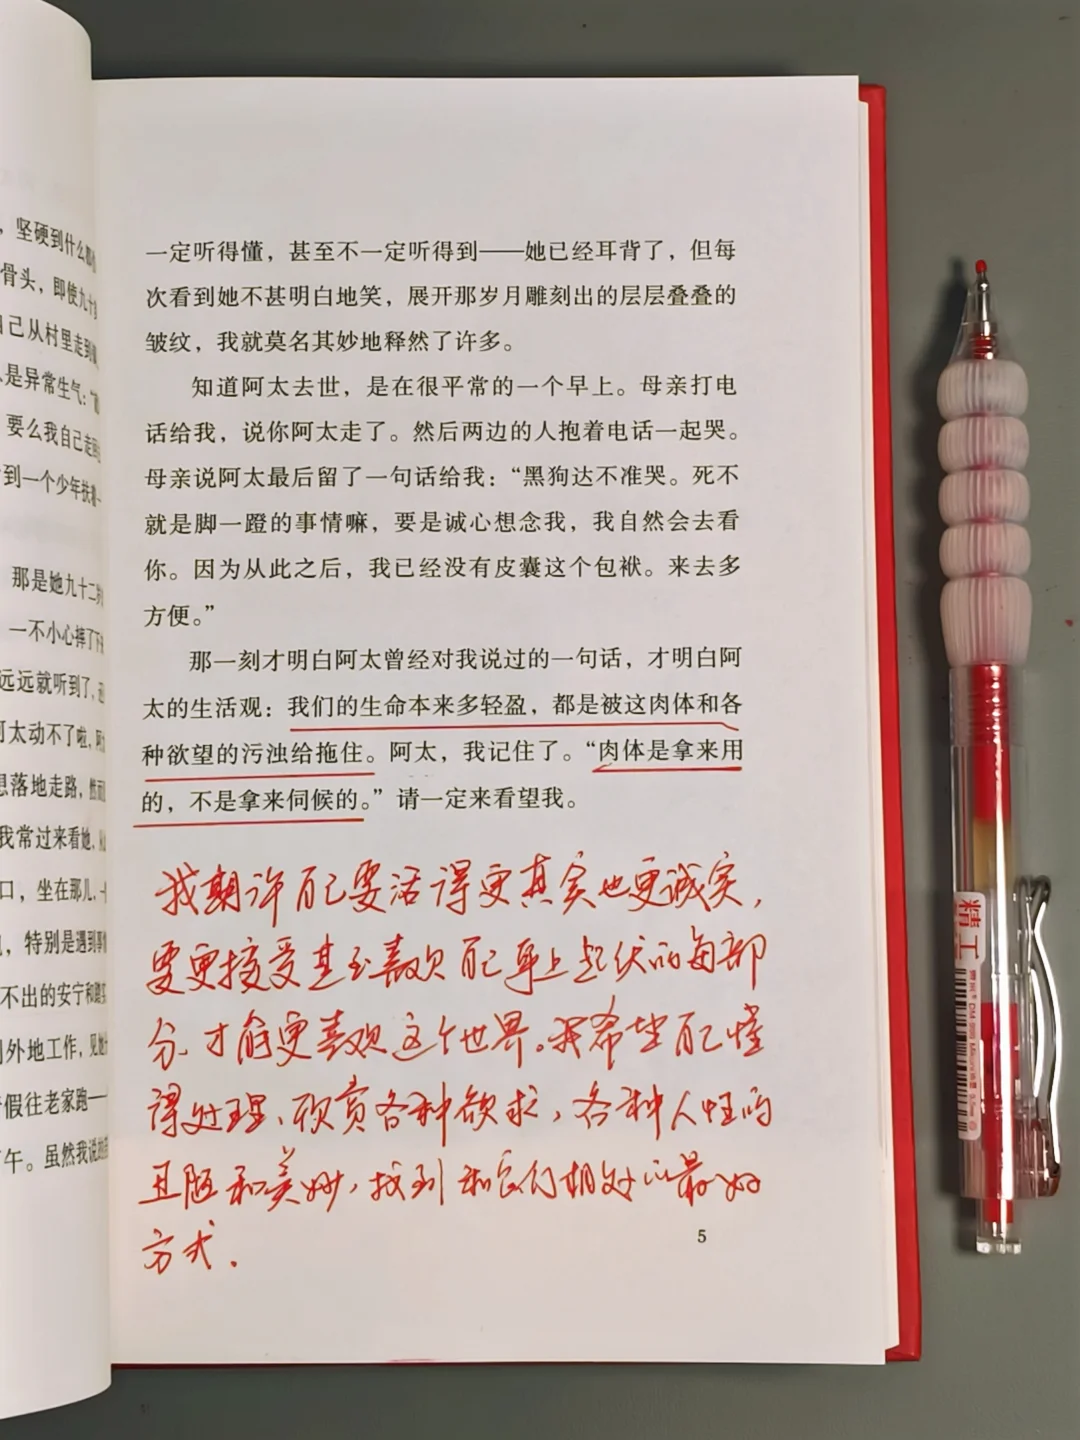 ，坚硬到什么都
骨头，即使九十
己从村里走到
是异常生气：“
要么我自己走
到一个少年扶着
那是她九十二
一不小心摔了下
远远就听到了，
阿太动不了啦，
想落地走路，然
我常过来看她，
口，坐在那儿，一
，特别是遇到事
不出的安宁和踏实
到外地工作，见她
假往老家跑——
午。虽然我说的
一定听得懂，甚至不一定听得到——她已经耳背了，但每
次看到她不甚明白地笑，展开那岁月雕刻出的层层叠叠的
皱纹，我就莫名其妙地释然了许多。
知道阿太去世，是在很平常的一个早上。母亲打电
话给我，说你阿太走了。然后两边的人抱着电话一起哭。
母亲说阿太最后留了一句话给我：“黑狗达不准哭。死不
就是脚一蹬的事情嘛，要是诚心想念我，我自然会去看
你。因为从此之后，我已经没有皮囊这个包袱。来去多
方便。”
那一刻才明白阿太曾经对我说过的一句话，才明白阿
太的生活观：我们的生命本来多轻盈，都是被这肉体和各
种欲望的污浊给拖住。阿太，我记住了。“肉体是拿来用
的，不是拿来伺候的。”请一定来看望我。
我期许自己要活得更真实也更诚实，
要更接受甚至喜欢自己身上起伏的每部
分，才能更喜欢这个世界。我希望自己懂
得处理、欣赏各种欲求，各种人性的
丑陋和美妙，找到和它们相处的最好
方式.
5
精工